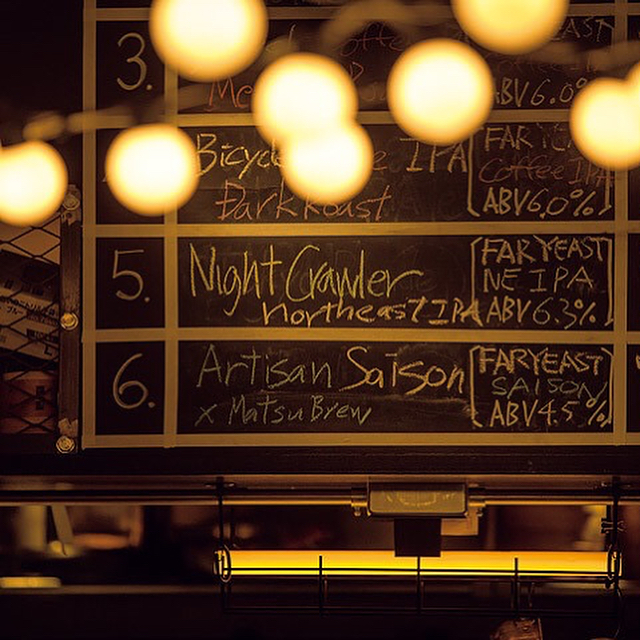 3.
ABV 6.0%
Bicycle IPA
Dark Roast
FAR YEAST
Coffee IPA
ABV 6.0%
5.
Night Crawler
northeast IPA
FAR YEAST
NE IPA
ABV 6.3%
6.
Artisan Saison
x Matsu Brew
FAR YEAST
SAISON
ABV 4.5%